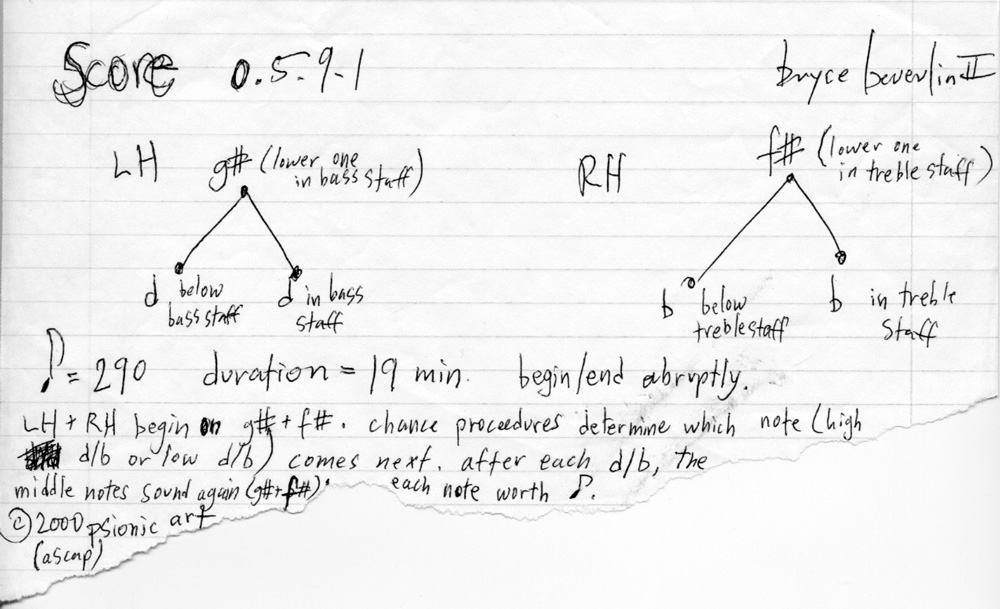 Score 0.5.9.1
bryce beverlin II
LH
g# (lower one
in bass staff)
RH
f# (lower one
in treble staff)
d below
bass staff
d in bass
staff
b below
treble staff
b in treble
staff
♪ = 290 duration = 19 min. begin/end abruptly.
LH + RH begin on g# + f#. chance proceedures determine which note (high
d/b or low d/b) comes next. after each d/b, the
middle notes sound again (g#+f#). each note worth ♪.
© 2000 psionic art
(ascap)